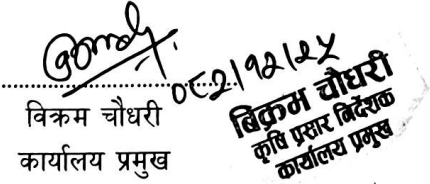 ०८२।१२।२५
विक्रम चौधरी
कार्यालय प्रमुख
बिक्रम चौधरी
कृषि प्रसार निर्देशक
कार्यालय प्रमुख